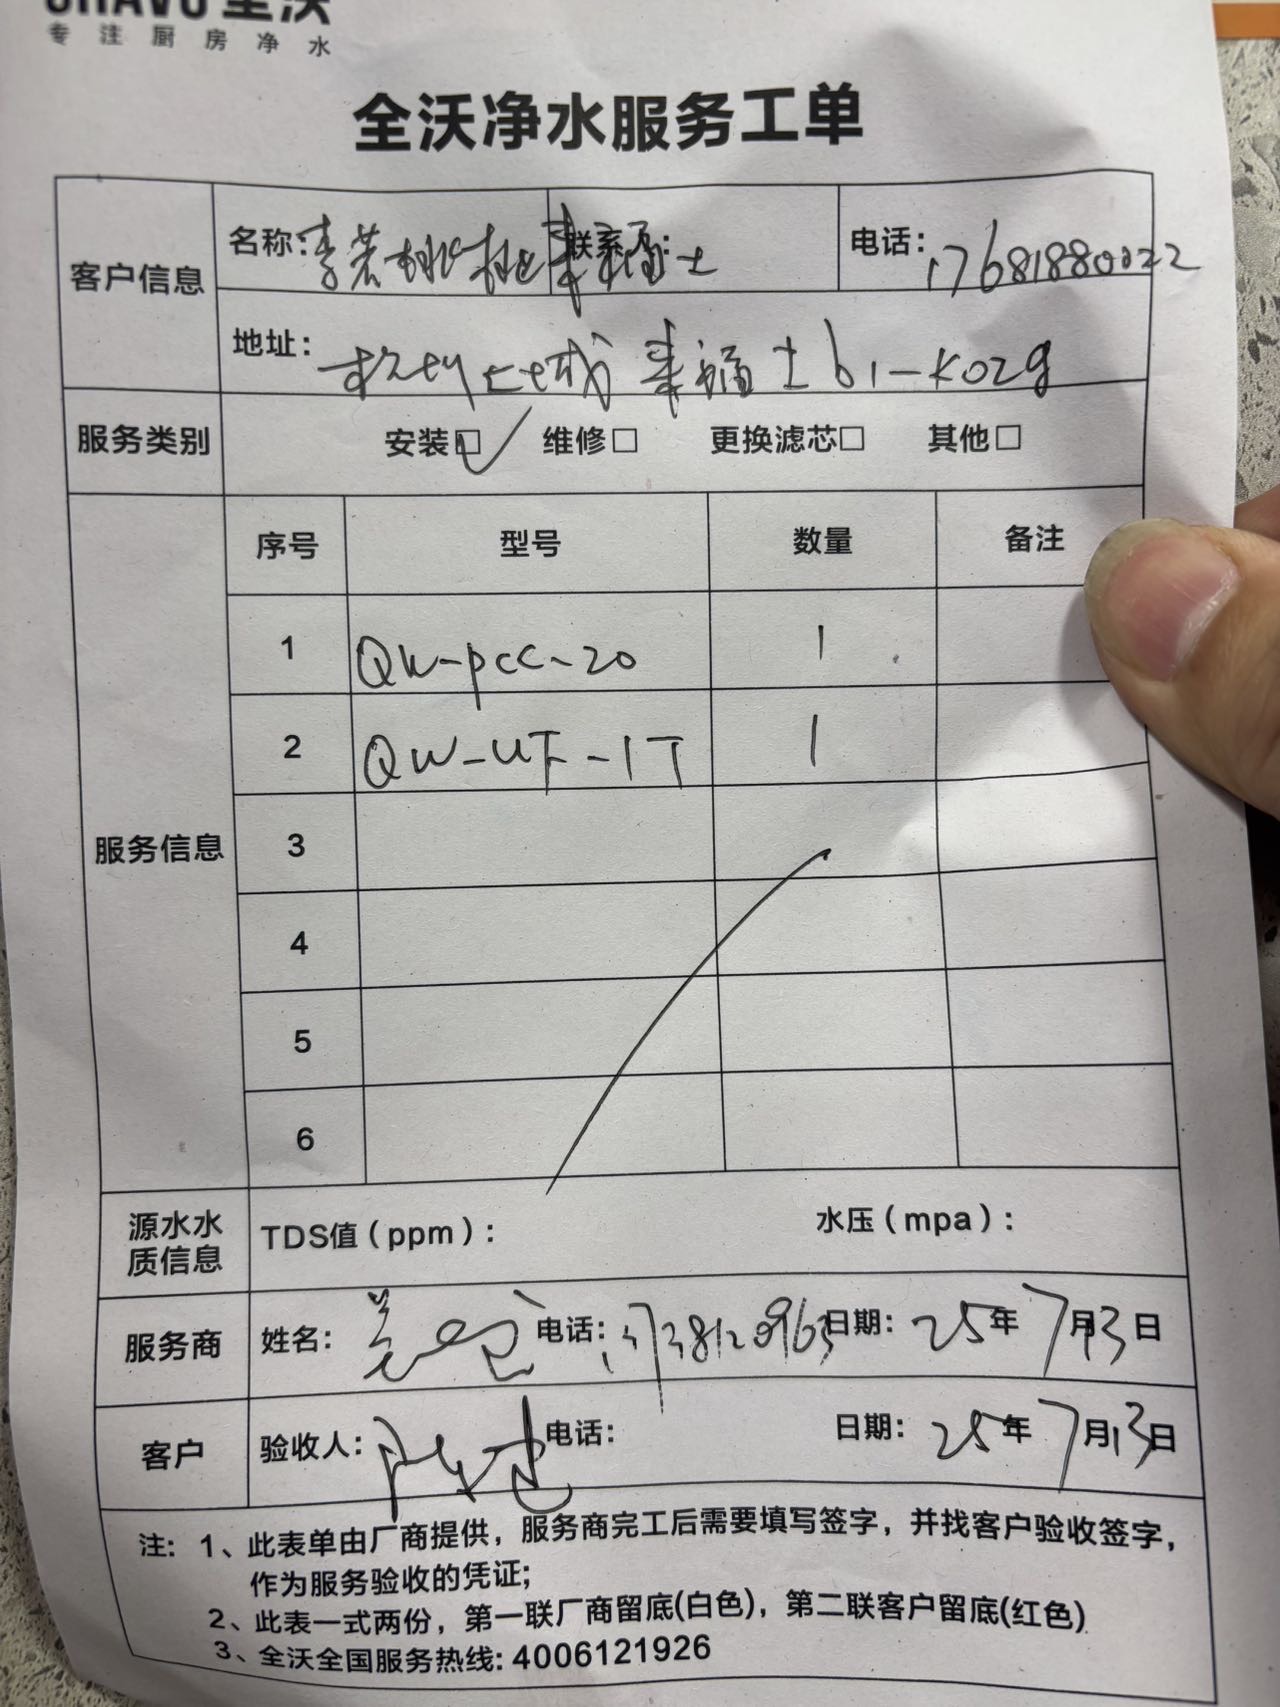 全沃
专注厨房净水
全沃净水服务工单
客户信息
名称: 联系人: 电话: 17681880022
地址: 杭州上城来福士b1-K029
服务类别 安装☑ 维修□ 更换滤芯□ 其他□
服务信息
序号 型号 数量 备注
1 QW-pcc-20 1
2 QW-UF-1T 1
3
4
5
6
源水水质信息 TDS值(ppm): 水压(mpa):
服务商 姓名: 电话: 日期: 25年7月13日
客户 验收人: 电话: 日期: 25年7月13日
注: 1、此表单由厂商提供，服务商完工后需要填写签字，并找客户验收签字，
作为服务验收的凭证;
2、此表一式两份，第一联厂商留底(白色)，第二联客户留底(红色)
3、全沃全国服务热线: 4006121926